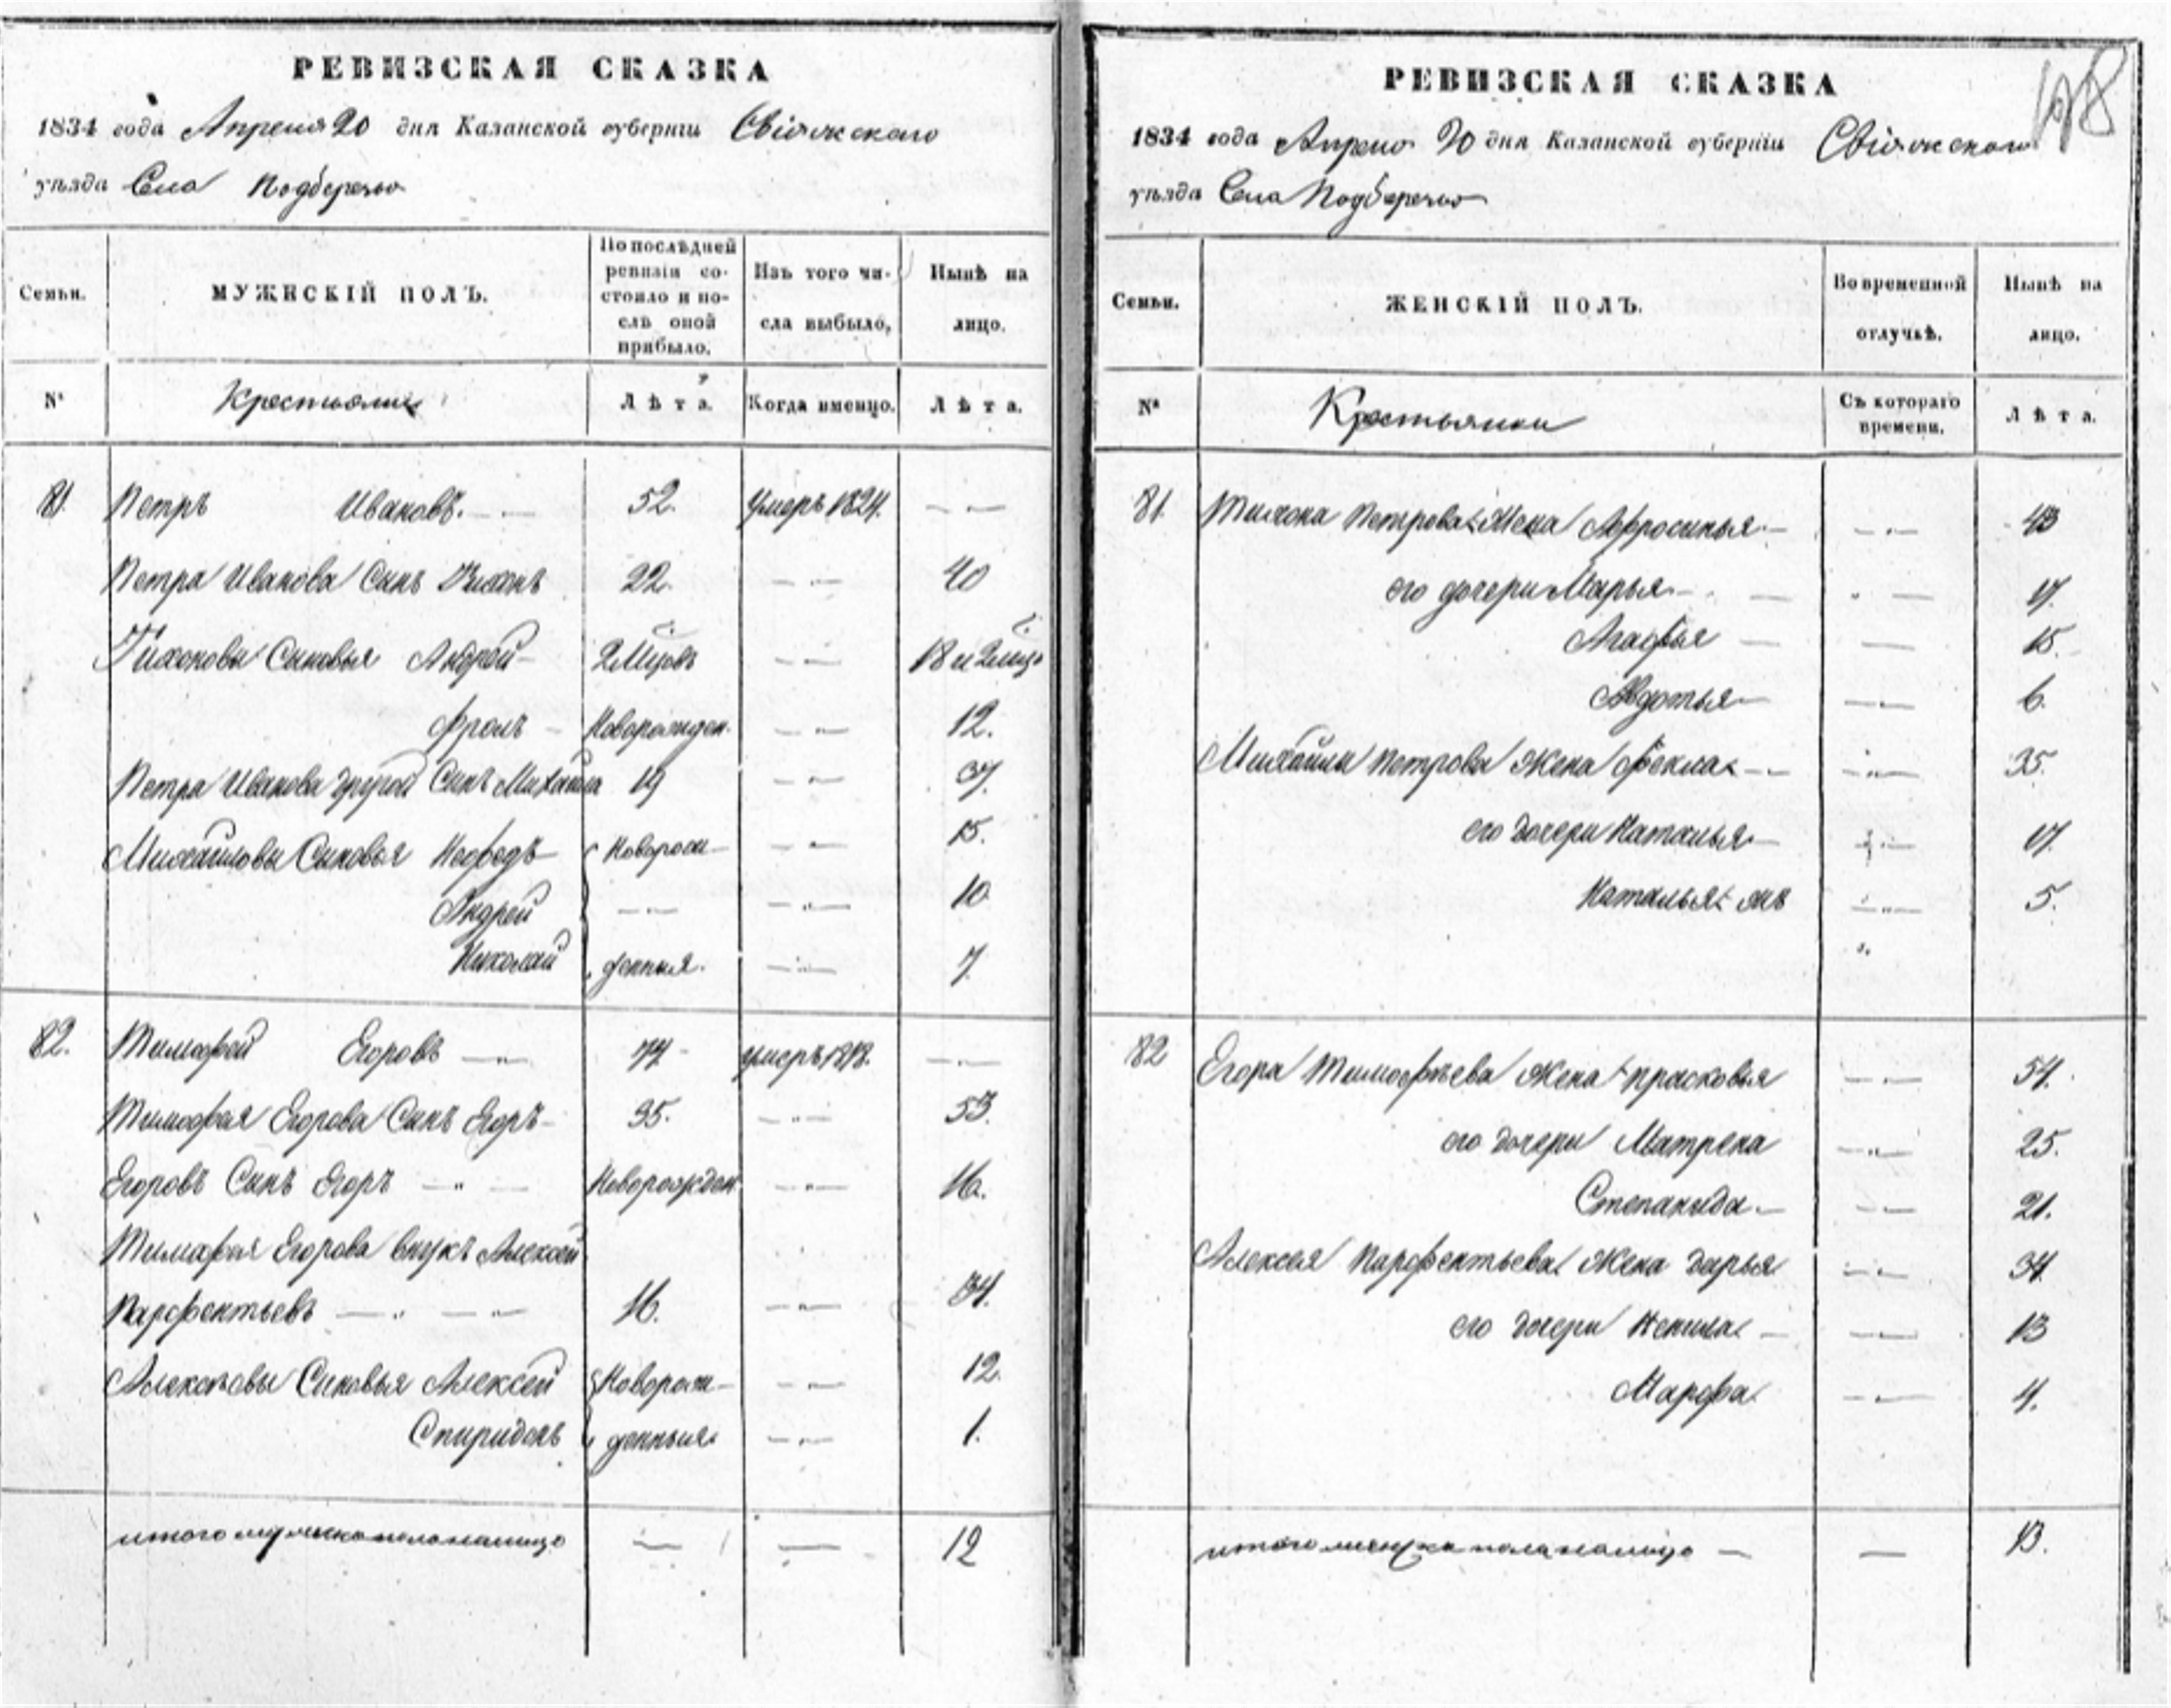 РЕВИЗСКАЯ СКАЗКА
1834 года Апреля 20 дня Казанской губернiи Свiяжскаго
уѣзда Села Подберезья
Семьи.
МУЖЕСКIЙ ПОЛЪ.
По послѣдней ревизiи состояло и послѣ оной прибыло.
Изъ того числа выбыло,
Нынѣ на лицо.
№
Крестьяне
Лѣта.
Когда именно.
Лѣта.
81. Петръ Ивановъ. 52. умеръ 1824.
Петра Иванова Сынъ Тихонъ 22. 40
Тихоновы Сыновья Андрей 2 Мцовъ 18 и 2 мцо
Фролъ Новорожден. 12.
Петра Иванова другой Сынъ Михайла 19 37.
Михайловы Сыновья Нефедъ Новорож 15.
Андрей 10
Николай денныя. 7.
82. Тимофей Егоровъ 77 умеръ 1818.
Тимофея Егорова Сынъ Егоръ 35. 53.
Егоровъ Сынъ Егоръ Новорожден 16.
Тимофея Егорова внукъ Алексей
Парфентьевъ 16. 34.
Алексѣевы Сыновья Алексей Новорож 12.
Спиридонъ денныя 1.
итого мужеска пола налицо 12
198
РЕВИЗСКАЯ СКАЗКА
1834 года Апреля 20 дня Казанской губернiи Свiяжскаго
уѣзда Села Подберезья
Семьи.
ЖЕНСКIЙ ПОЛЪ.
Во временной отлучкѣ.
Нынѣ на лицо.
№
Крестьянки
Съ котораго времени.
Лѣта.
81. Тихона Петрова Жена Афросинья 43
его дочери Марья 17.
Агафья 15.
Авдотья 6.
Михайлы Петрова Жена Фекла 35.
его дочери Наталья 17.
Наталья жъ 5.
82 Егора Тимофѣева Жена прасковья 54.
его дочери Матрена 25.
Степанида 21.
Алексея Парфентьева Жена дарья 34.
его дочери Ненила 13
Марфа 4.
итого женска пола налицо 13.